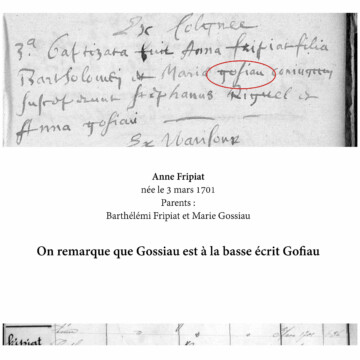 Ex Colognee
3a baptizata fuit Anna fripiat filia
Bartholomei et Maria gosiau coniugum
susceperunt stephanus Riguel et
Anna gosiau
Ex Wansour
Anne Fripiat
née le 3 mars 1701
Parents :
Barthélémi Fripiat et Marie Gossiau
On remarque que Gossiau est à la basse écrit Gofiau
fripiat